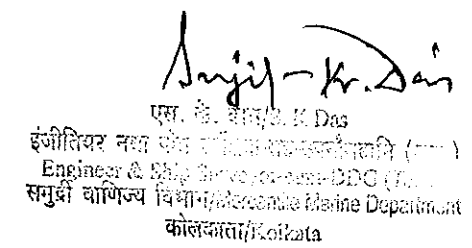 Sujit Kr. Das
एस. के. दास/S. K Das
इंजीनियर तथा
Engineer & Ship Surveyor-cum-DDG
समुद्री वाणिज्य विभाग/Mercantile Marine Department
कोलकाता/Kolkata